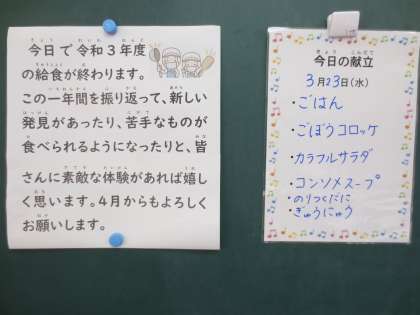 今日で令和３年度
の給食が終わります。
この一年間を振り返って、新しい
発見があったり、苦手なものが
食べられるようになったりと、皆
さんに素敵な体験があれば嬉し
く思います。４月からもよろしく
お願いします。
今日の献立
3月23日(水)
・ごはん
・ごぼうコロッケ
・カラフルサラダ
・コンソメスープ
・のりつくだに
・ぎゅうにゅう